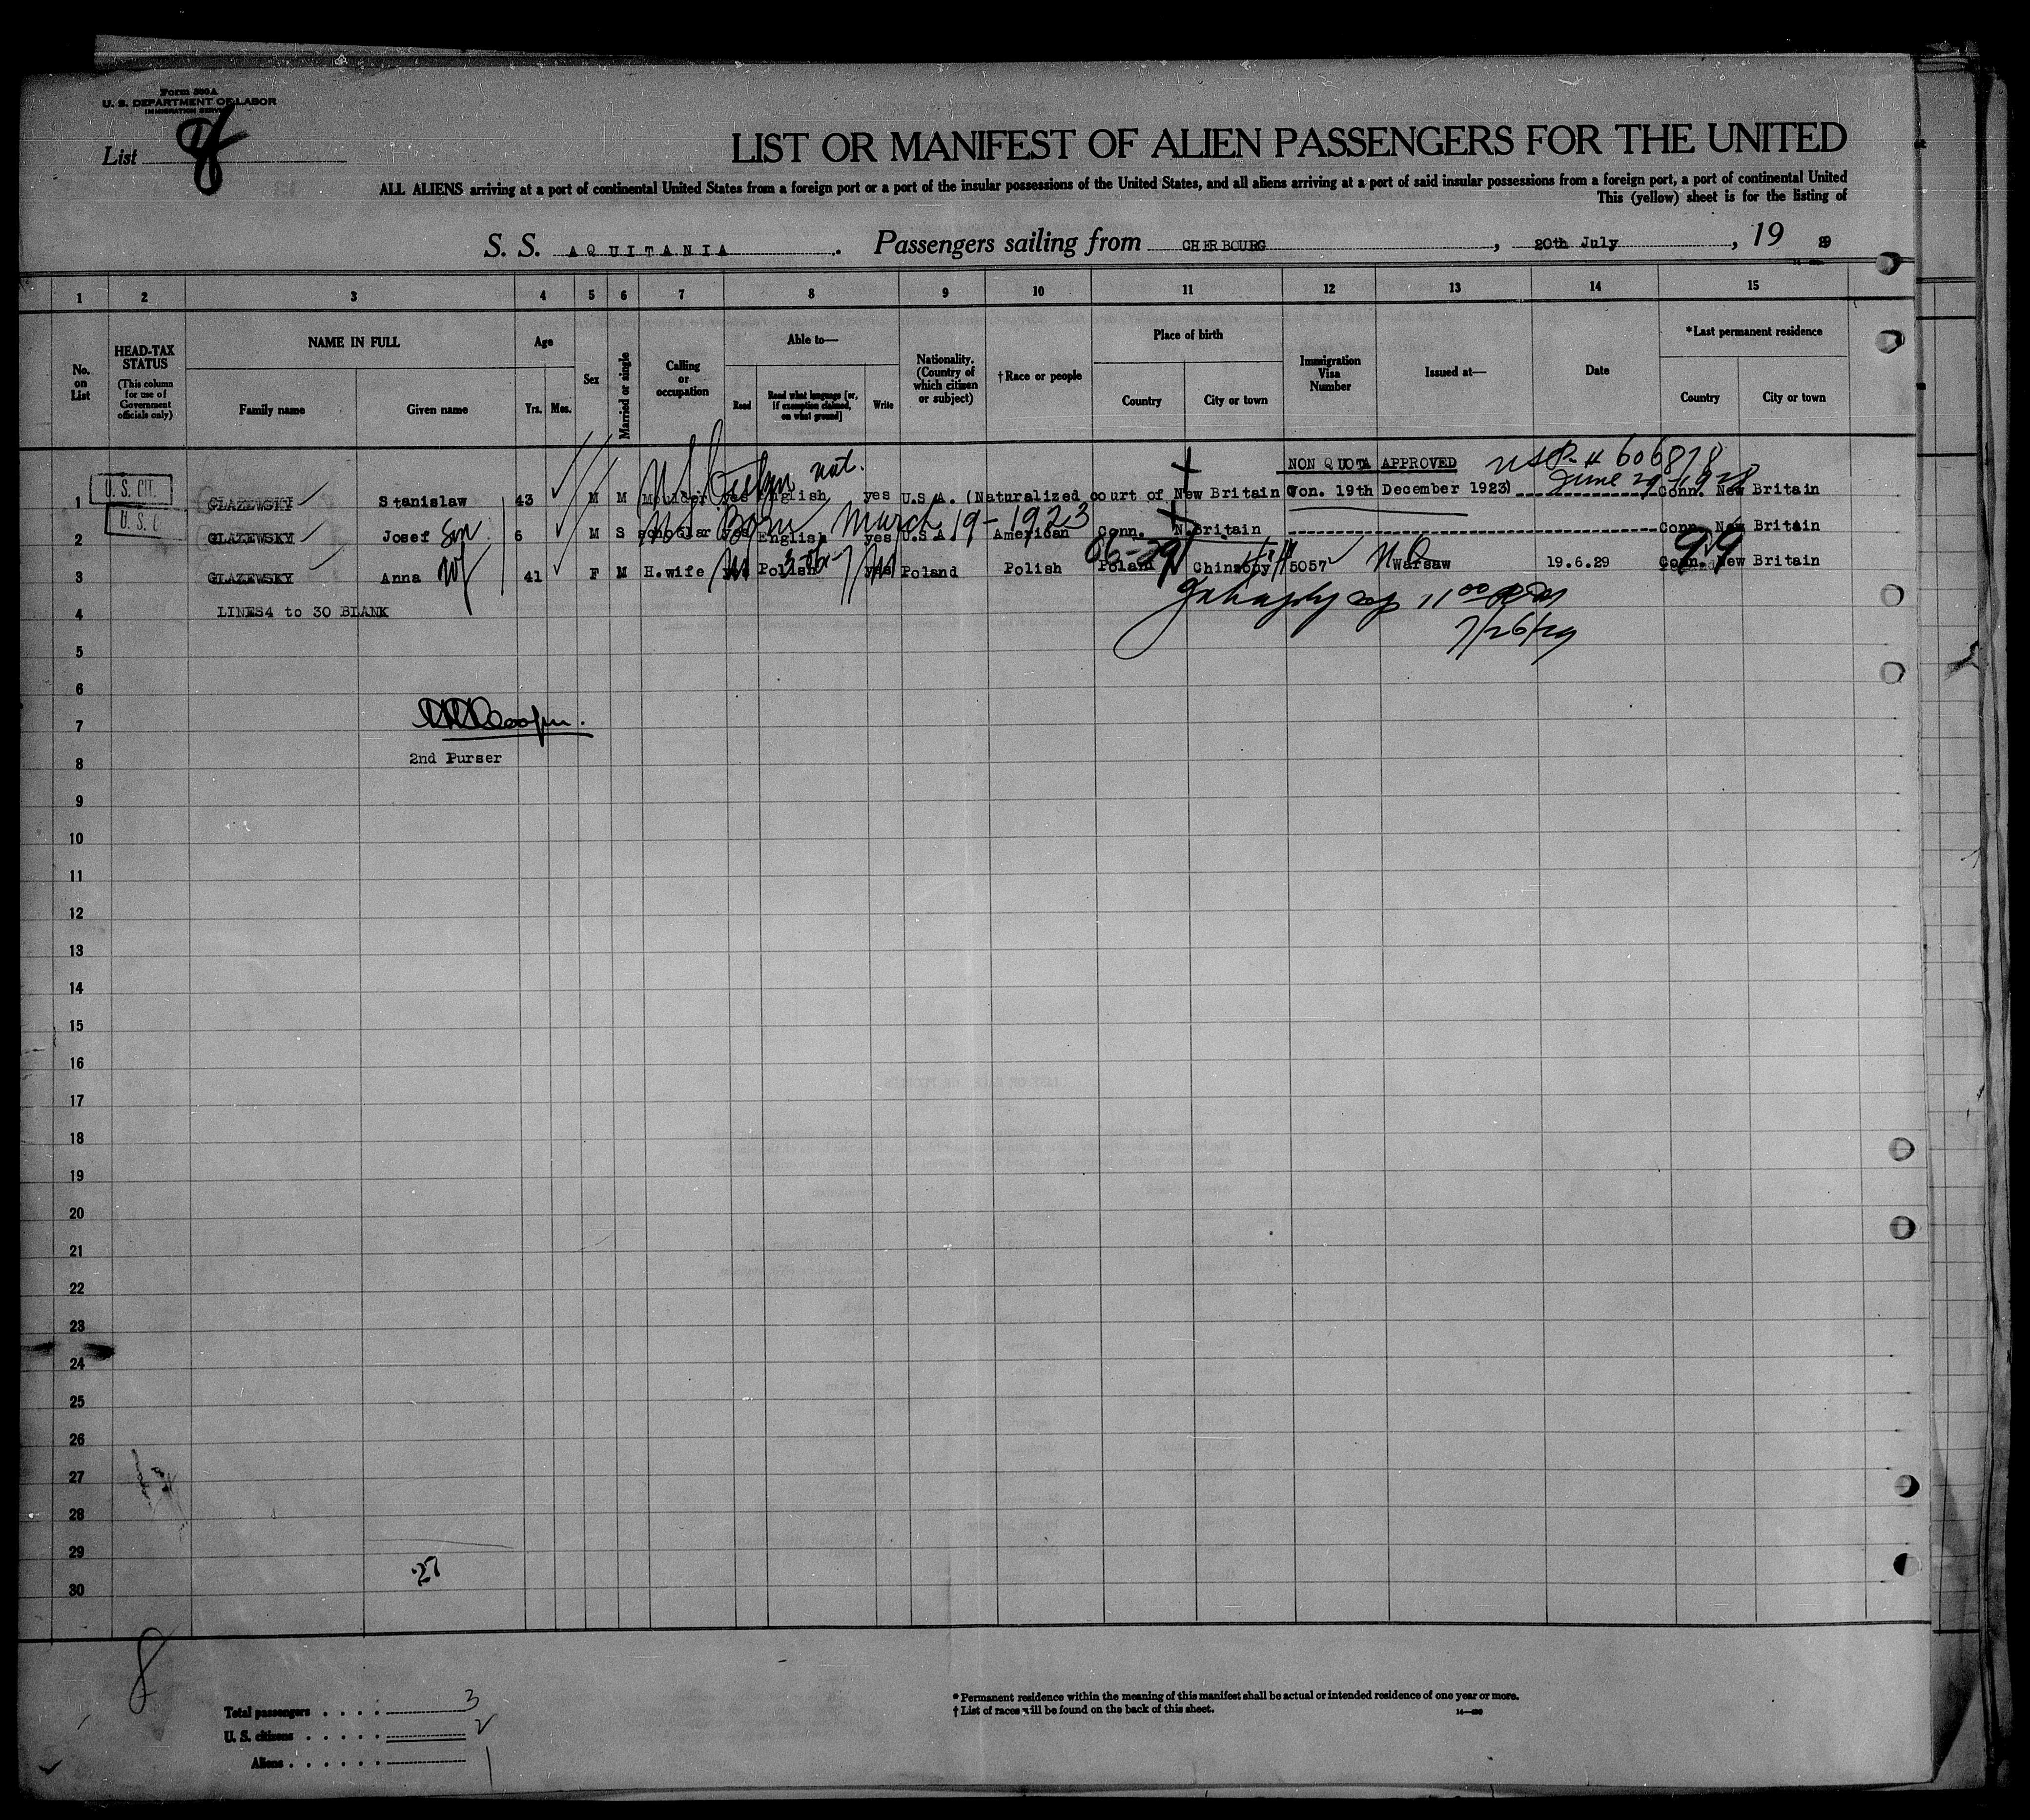 Form 500 A
U. S. DEPARTMENT OF LABOR
IMMIGRATION SERVICE
List 8
LIST OR MANIFEST OF ALIEN PASSENGERS FOR THE UNITED
ALL ALIENS arriving at a port of continental United States from a foreign port or a port of the insular possessions of the United States, and all aliens arriving at a port of said insular possessions from a foreign port, a port of continental United
This (yellow) sheet is for the listing of
S. S. AQUITANIA. Passengers sailing from CHERBOURG, 20th July, 19 29
1 2 3 4 5 6 7 8 9 10 11 12 13 14 15
No. on List
HEAD-TAX STATUS
(This column for use of Government officials only)
NAME IN FULL
Family name Given name
Age
Yrs. Mos.
Sex
Married or single
Calling or occupation
Able to—
Read Read what language [or, if exemption claimed, on what ground] Write
Nationality. (Country of which citizen or subject)
† Race or people
Place of birth
Country City or town
Immigration Visa Number
Issued at—
Date
* Last permanent residence
Country City or town
NON QUOTA APPROVED USP. # 606878
June 29-1928
U. S. CIT.
US Citizen nat.
1 GLAZEWSKY Stanislaw 43 M M Moulder yes English yes U.S.A. (Naturalized court of New Britain Con. 19th December 1923) Conn. New Britain
U. S. C
US Born March 19-1923
2 GLAZEWSKY Josef Son 6 M S scholar yes English yes U.S.A. American Conn. N.Britain Conn. New Britain
3 GLAZEWSKY Anna Wf 41 F M H.wife yes Polish yes Poland Polish Poland 5057 Warsaw 19.6.29 Conn. New Britain
4 LINES4 to 30 BLANK
11 00
7/26/29
5
6
7
2nd Purser
8
9
10
11
12
13
14
15
16
17
18
19
20
21
22
23
24
25
26
27
28
29
27
30
8
Total passengers . . . . 3
U. S. citizens . . . . . 2
Aliens . . . . . . 1
* Permanent residence within the meaning of this manifest shall be actual or intended residence of one year or more.
† List of races will be found on the back of this sheet.